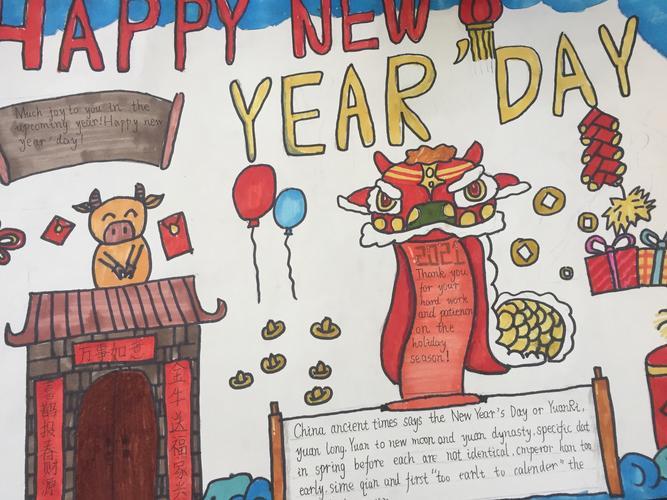 HAPPY NEW
YEAR'DAY
Much joy to you in the
upcoming year!Happy new
year'day!
2021
Thank you
for your
hard work
and patience
on the
holiday
season!
万事如意
喜鹊报春财源
金牛送福家兴
China ancient times says the New Year's Day or YuanRi,
yuan long. Yuan to new moon and yuan dynasty. specific dat
in spring before each are not identical. emperor han too
early. sime qian and first "too earlt to calender" the